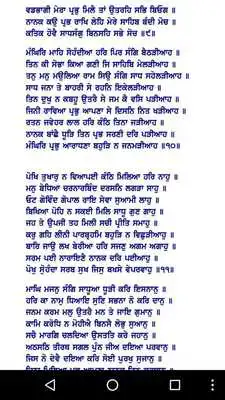 ਵਡਭਾਗੀ ਮੇਰਾ ਪ੍ਰਭੁ ਮਿਲੈ ਤਾਂ ਉਤਰਹਿ ਸਭਿ ਬਿਓਗ ॥
ਨਾਨਕ ਕਉ ਪ੍ਰਭ ਰਾਖਿ ਲੇਹਿ ਮੇਰੇ ਸਾਹਿਬ ਬੰਦੀ ਮੋਚ ॥
ਕਤਿਕ ਹੋਵੈ ਸਾਧਸੰਗੁ ਬਿਨਸਹਿ ਸਭੇ ਸੋਚ ॥੯॥
ਮੰਘਿਰਿ ਮਾਹਿ ਸੋਹੰਦੀਆ ਹਰਿ ਪਿਰ ਸੰਗਿ ਬੈਠੜੀਆਹ ॥
ਤਿਨ ਕੀ ਸੋਭਾ ਕਿਆ ਗਣੀ ਜਿ ਸਾਹਿਬਿ ਮੇਲੜੀਆਹ ॥
ਤਨੁ ਮਨੁ ਮਉਲਿਆ ਰਾਮ ਸਿਉ ਸੰਗਿ ਸਾਧ ਸਹੇਲੜੀਆਹ ॥
ਸਾਧ ਜਨਾ ਤੇ ਬਾਹਰੀ ਸੇ ਰਹਨਿ ਇਕੇਲੜੀਆਹ ॥
ਤਿਨ ਦੁਖੁ ਨ ਕਬਹੂ ਉਤਰੈ ਸੇ ਜਮ ਕੈ ਵਸਿ ਪੜੀਆਹ ॥
ਜਿਨੀ ਰਾਵਿਆ ਪ੍ਰਭੁ ਆਪਣਾ ਸੇ ਦਿਸਨਿ ਨਿਤ ਖੜੀਆਹ ॥
ਰਤਨ ਜਵੇਹਰ ਲਾਲ ਹਰਿ ਕੰਠਿ ਤਿਨਾ ਜੜੀਆਹ ॥
ਨਾਨਕ ਬਾਂਛੈ ਧੂੜਿ ਤਿਨ ਪ੍ਰਭ ਸਰਣੀ ਦਰਿ ਪੜੀਆਹ ॥
ਮੰਘਿਰਿ ਪ੍ਰਭੁ ਆਰਾਧਣਾ ਬਹੁੜਿ ਨ ਜਨਮੜੀਆਹ ॥੧੦॥
ਪੋਖਿ ਤੁਖਾਰੁ ਨ ਵਿਆਪਈ ਕੰਠਿ ਮਿਲਿਆ ਹਰਿ ਨਾਹੁ ॥
ਮਨੁ ਬੇਧਿਆ ਚਰਨਾਰਬਿੰਦ ਦਰਸਨਿ ਲਗੜਾ ਸਾਹੁ ॥
ਓਟ ਗੋਵਿੰਦ ਗੋਪਾਲ ਰਾਇ ਸੇਵਾ ਸੁਆਮੀ ਲਾਹੁ ॥
ਬਿਖਿਆ ਪੋਹਿ ਨ ਸਕਈ ਮਿਲਿ ਸਾਧੂ ਗੁਣ ਗਾਹੁ ॥
ਜਹ ਤੇ ਉਪਜੀ ਤਹ ਮਿਲੀ ਸਚੀ ਪ੍ਰੀਤਿ ਸਮਾਹੁ ॥
ਕਰੁ ਗਹਿ ਲੀਨੀ ਪਾਰਬ੍ਰਹਮਿ ਬਹੁੜਿ ਨ ਵਿਛੁੜੀਆਹੁ ॥
ਬਾਰਿ ਜਾਉ ਲਖ ਬੇਰੀਆ ਹਰਿ ਸਜਣੁ ਅਗਮ ਅਗਾਹੁ ॥
ਸਰਮ ਪਈ ਨਾਰਾਇਣੈ ਨਾਨਕ ਦਰਿ ਪਈਆਹੁ ॥
ਪੋਖੁ ਸੋੁਹੰਦਾ ਸਰਬ ਸੁਖ ਜਿਸੁ ਬਖਸੇ ਵੇਪਰਵਾਹੁ ॥੧੧॥
ਮਾਘਿ ਮਜਨੁ ਸੰਗਿ ਸਾਧੂਆ ਧੂੜੀ ਕਰਿ ਇਸਨਾਨੁ ॥
ਹਰਿ ਕਾ ਨਾਮੁ ਧਿਆਇ ਸੁਣਿ ਸਭਨਾ ਨੋ ਕਰਿ ਦਾਨੁ ॥
ਜਨਮ ਕਰਮ ਮਲੁ ਉਤਰੈ ਮਨ ਤੇ ਜਾਇ ਗੁਮਾਨੁ ॥
ਕਾਮਿ ਕਰੋਧਿ ਨ ਮੋਹੀਐ ਬਿਨਸੈ ਲੋਭੁ ਸੁਆਨੁ ॥
ਸਚੈ ਮਾਰਗਿ ਚਲਦਿਆ ਉਸਤਤਿ ਕਰੇ ਜਹਾਨੁ ॥
ਅਠਸਠਿ ਤੀਰਥ ਸਗਲ ਪੁੰਨ ਜੀਅ ਦਇਆ ਪਰਵਾਨੁ ॥
ਜਿਸ ਨੋ ਦੇਵੈ ਦਇਆ ਕਰਿ ਸੋਈ ਪੁਰਖੁ ਸੁਜਾਨੁ ॥